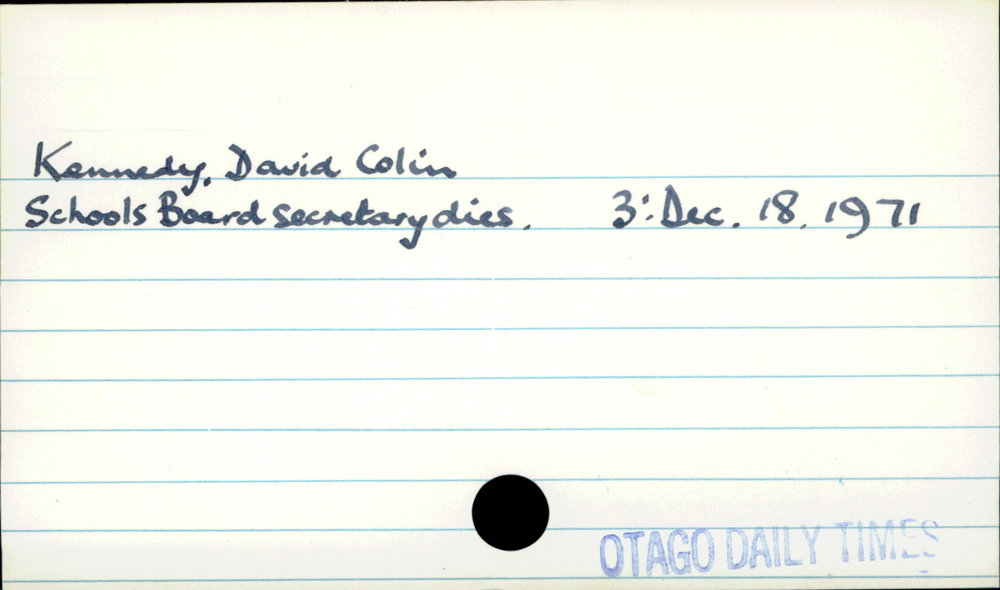 Kennedy, David Colin
Schools Board secretary dies. 3: Dec. 18. 1971
OTAGO DAILY TIMES